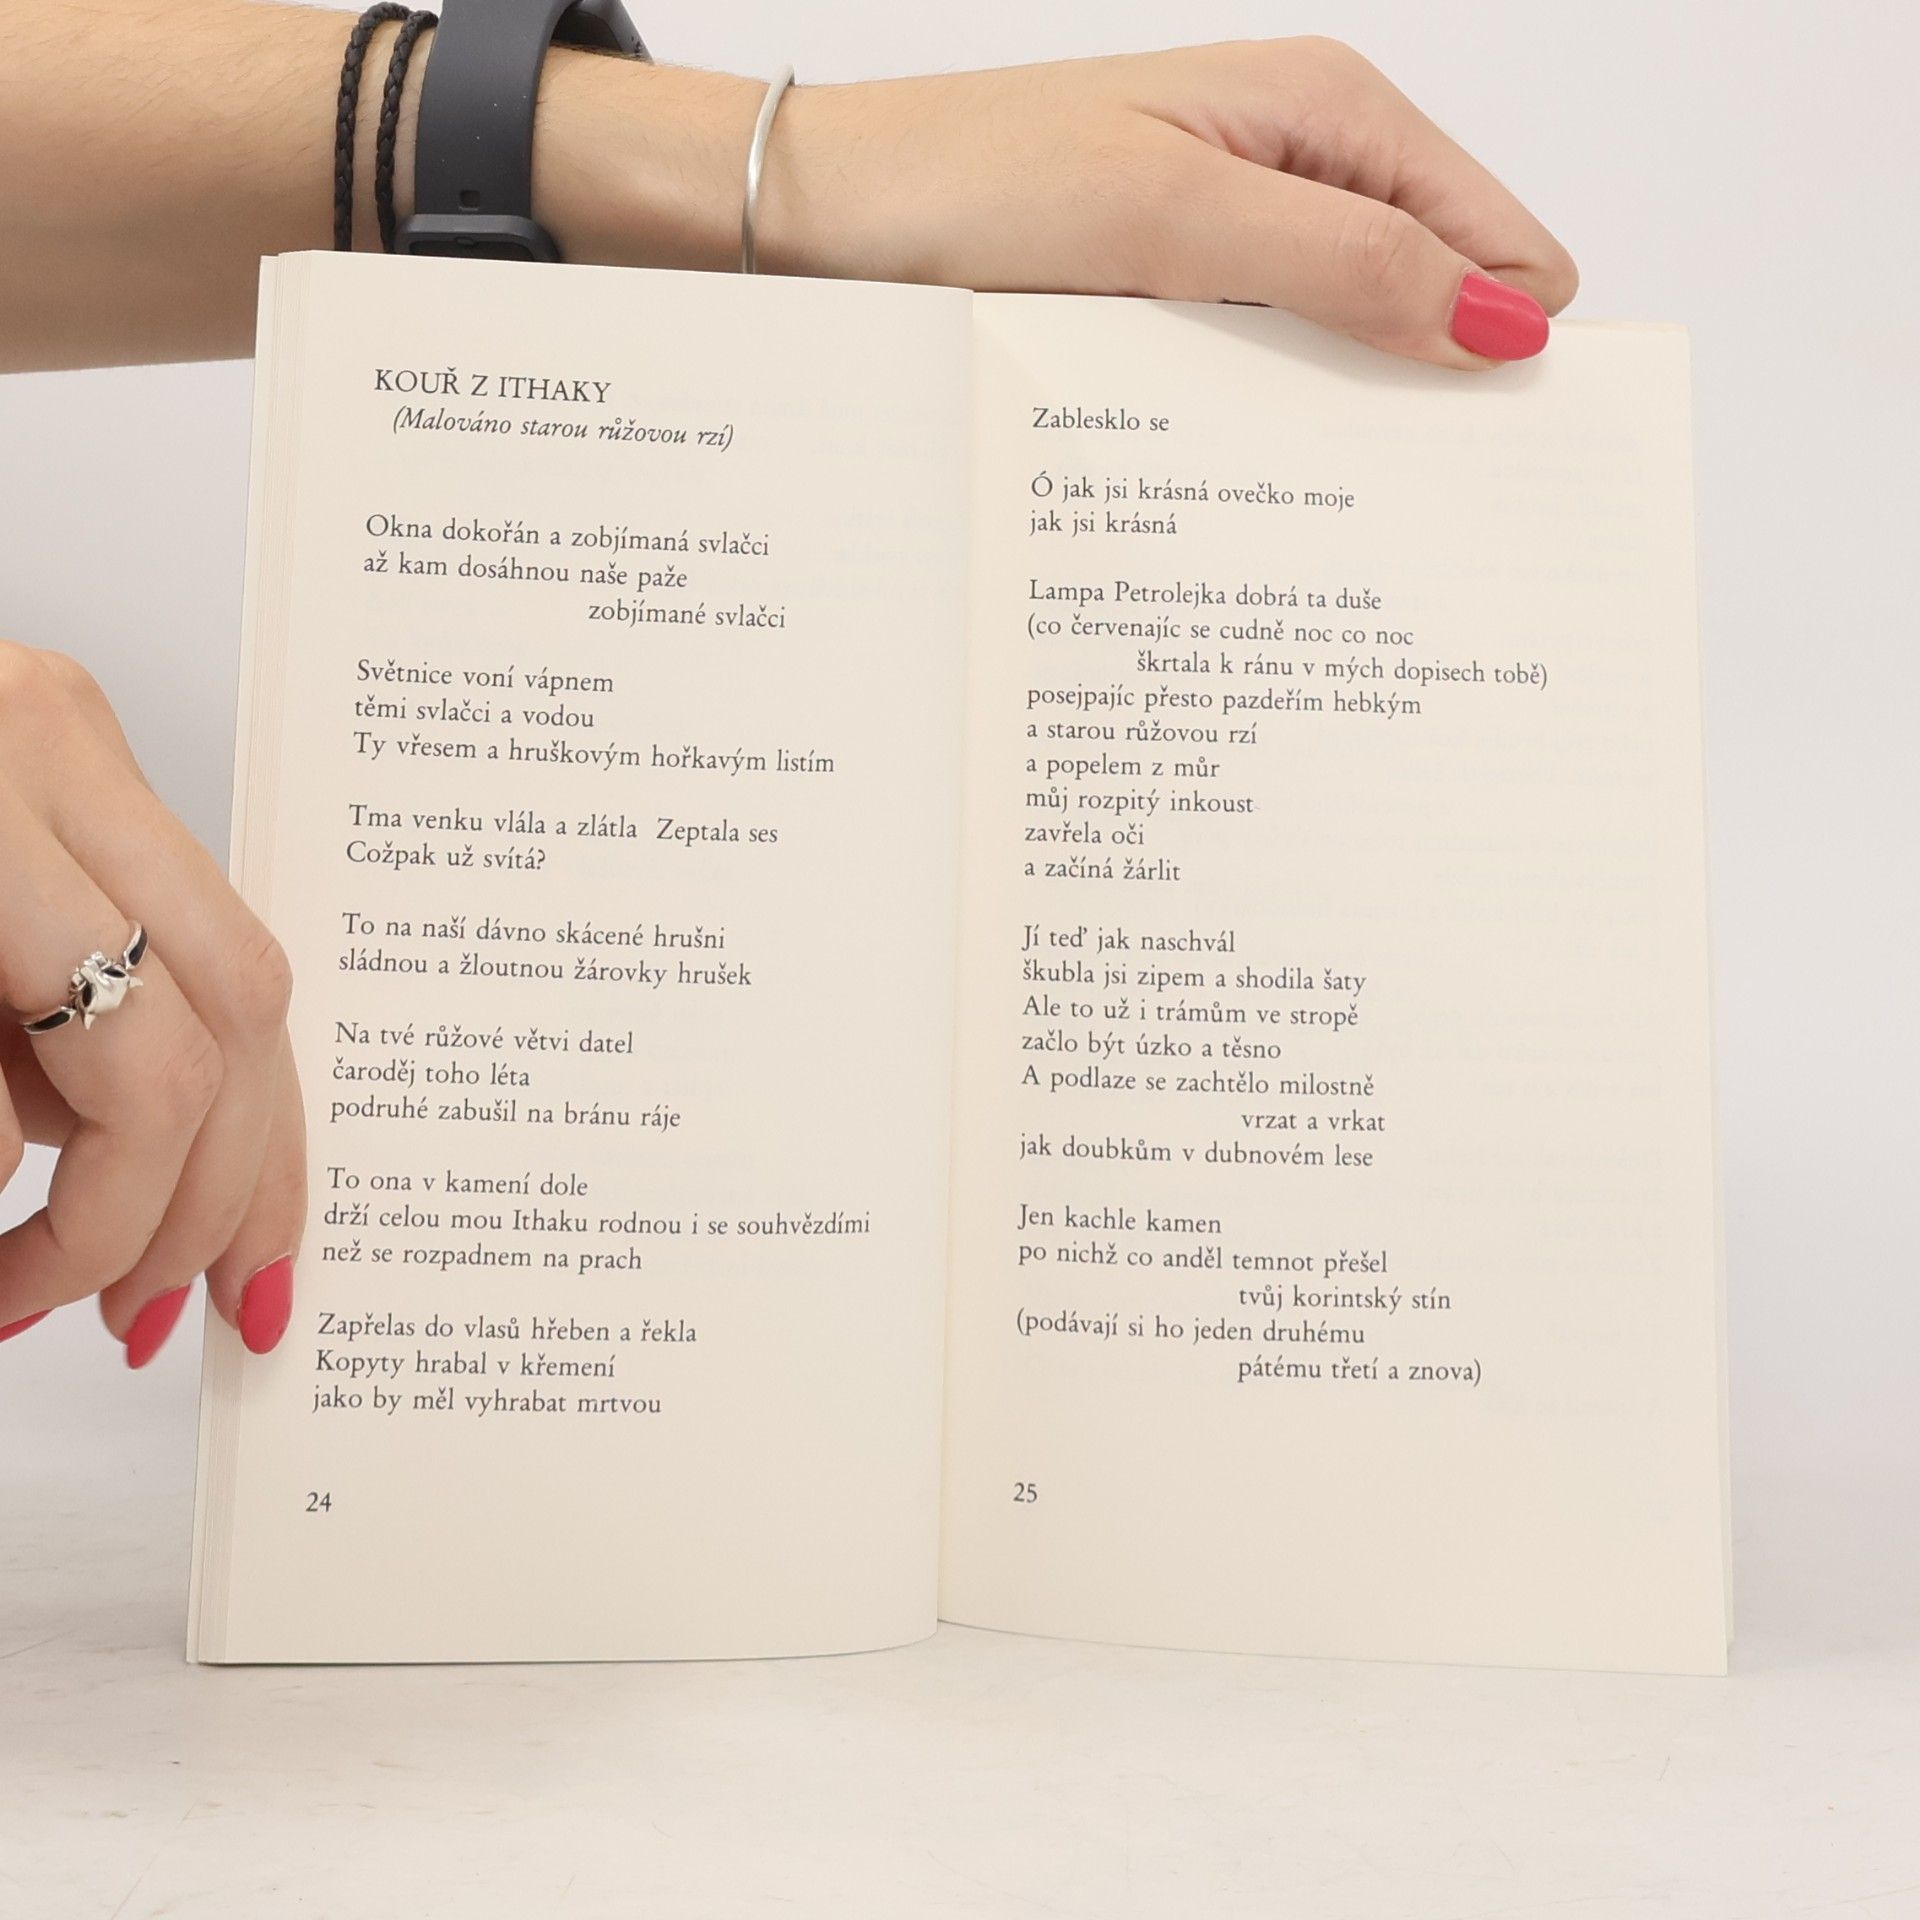 KOUŘ Z ITHAKY
(Malováno starou růžovou rzí)
Okna dokořán a zobjímaná svlačci
až kam dosáhnou naše paže
zobjímané svlačci
Světnice voní vápnem
těmi svlačci a vodou
Ty vřesem a hruškovým hořkavým listím
Tma venku vlála a zlátla  Zeptala ses
Cožpak už svítá?
To na naší dávno skácené hrušni
sládnou a žloutnou žárovky hrušek
Na tvé růžové větvi datel
čaroděj toho léta
podruhé zabušil na bránu ráje
To ona v kamení dole
drží celou mou Ithaku rodnou i se souhvězdími
než se rozpadnem na prach
Zapřelas do vlasů hřeben a řekla
Kopyty hrabal v křemení
jako by měl vyhrabat mrtvou
24
Zablesklo se
Ó jak jsi krásná ovečko moje
jak jsi krásná
Lampa Petrolejka dobrá ta duše
(co červenajíc se cudně noc co noc
škrtala k ránu v mých dopisech tobě)
posejpajíc přesto pazdeřím hebkým
a starou růžovou rzí
a popelem z můr
můj rozpitý inkoust
zavřela oči
a začíná žárlit
Jí teď jak naschvál
škubla jsi zipem a shodila šaty
Ale to už i trámům ve stropě
začlo být úzko a těsno
A podlaze se zachtělo milostně
vrzat a vrkat
jak doubkům v dubnovém lese
Jen kachle kamen
po nichž co anděl temnot přešel
tvůj korintský stín
(podávají si ho jeden druhému
pátému třetí a znova)
25